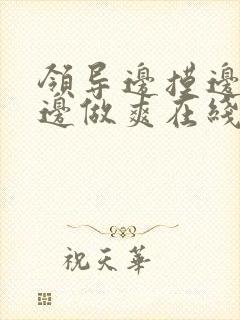 領导邊摸邊
邊做爽在綫
祝天華